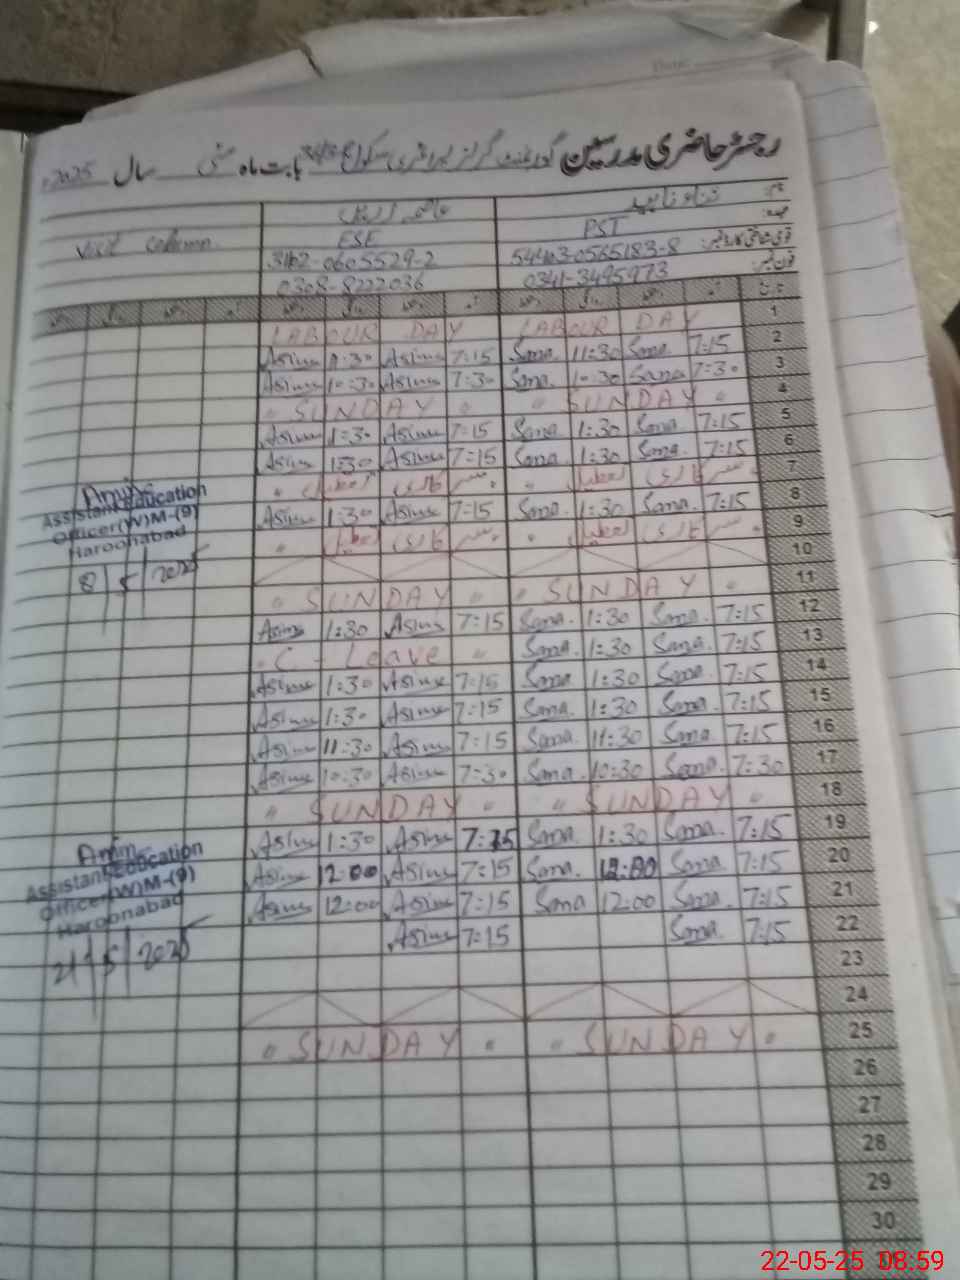 رجسٹر حاضری مدرسین گورنمنٹ گرلز پرائمری سکول بابت ماہ مئی سال 2025
نام: ثناء ناہید
عہدہ: PST ESE Visit column
قومی شناختی کارڈ نمبر: 54403-0565183-8 31102-0605529-2
فون نمبر: 0341-3495973 0308-8222036
LABOUR DAY LABOUR DAY 1
Asima 11:30 Asima 7:15 Sana. 11:30 Sana. 7:15 2
Asima 10:30 Asima 7:30 Sana. 10:30 Sana 7:30 3
" SUNDAY " " SUNDAY " 4
Asima 1:30 Asima 7:15 Sana. 1:30 Sana. 7:15 5
Asima 1:30 Asima 7:15 Sana. 1:30 Sana. 7:15 6
سرکاری تعطیل سرکاری تعطیل 7
Asima 1:30 Asima 7:15 Sana. 1:30 Sana. 7:15 8
Assistant Education
Officer(W)M-(9)
Haroonabad
8/5/2025
سرکاری تعطیل سرکاری تعطیل 9
10
" SUNDAY " " SUNDAY " 11
Asima 1:30 Asima 7:15 Sana. 1:30 Sana. 7:15 12
C - Leave " Sana. 1:30 Sana. 7:15 13
Asima 1:30 Asima 7:15 Sana. 1:30 Sana. 7:15 14
Asima 1:30 Asima 7:15 Sana. 1:30 Sana. 7:15 15
Asima 11:30 Asima 7:15 Sana. 11:30 Sana. 7:15 16
Asima 10:30 Asima 7:30 Sana. 10:30 Sana. 7:30 17
" SUNDAY " " SUNDAY " 18
Asima 1:30 Asima 7:15 Sana. 1:30 Sana. 7:15 19
Asima 12:00 Asima 7:15 Sana. 12:00 Sana. 7:15 20
Asima 12:00 Asima 7:15 Sana 12:00 Sana. 7:15 21
Assistant Education
Officer(W)M-(9)
Haroonabad
21/5/2025
Asima 7:15 Sana. 7:15 22
23
24
" SUNDAY " " SUNDAY " 25
26
27
28
29
30
22-05-25 08:59